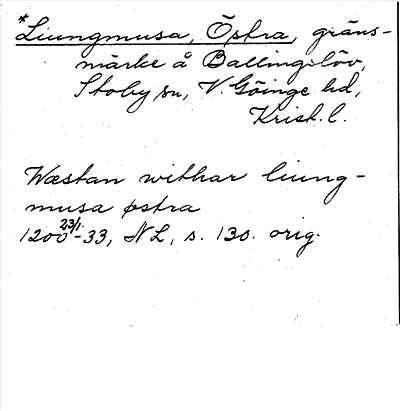 *Liungmusa, Östra, gräns-
märke å Ballingslöv,
Stoby sn, V. Göinge hd,
Krist. l.
Wæstan withar liung-
musa østra
1200 23/1-33, NL, s. 130. orig.